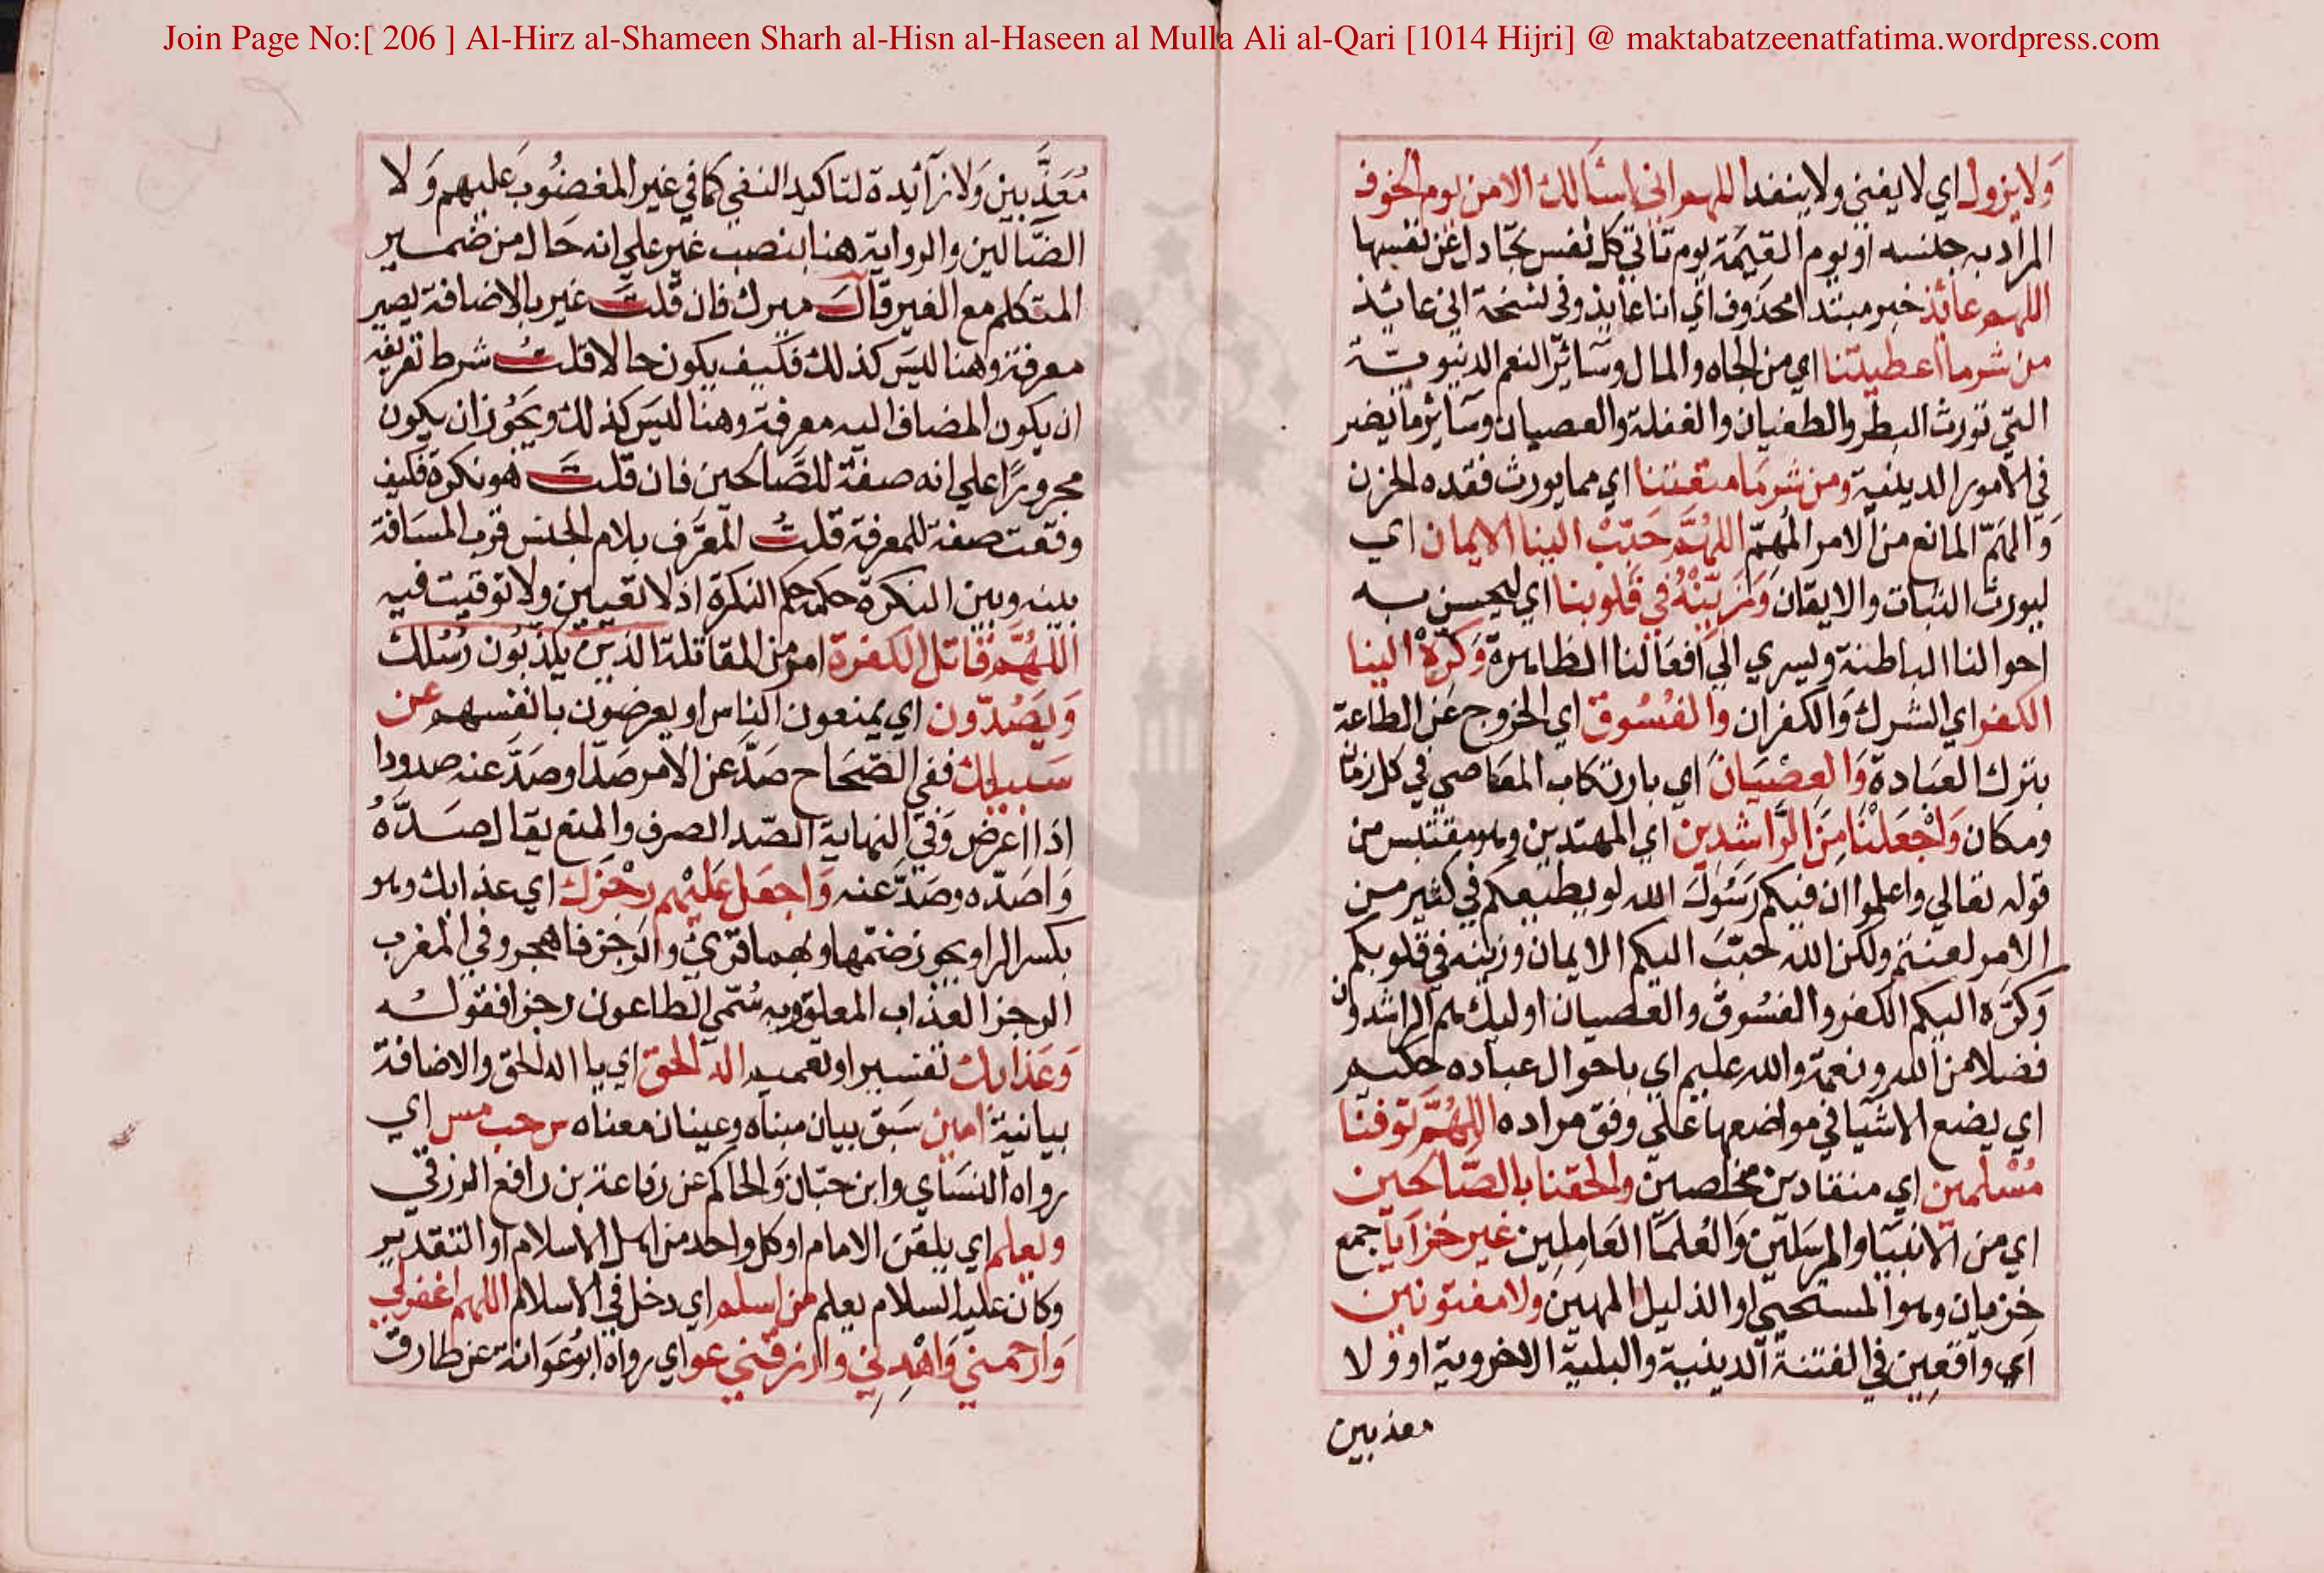 Join Page No:[ 206 ] Al-Hirz al-Shameen Sharh al-Hisn al-Haseen al Mulla Ali al-Qari [1014 Hijri] @ maktabatzeenatfatima.wordpress.com
وَلا يزول اي لا يفني ولا ينفد اللهم اني اسْاَلك الامن يوم الخوف
المراد به جنسه او يوم القيمَة يوم تاتي كل نفس تجادل عن نفسها
اللهم عائذ خبر مبتدا محذوف اي انا عايذ وفي نسخة اني عائذ
من شر ما اعطيتنا اي من الجاه والمال وسَائر النعم الدنيوية
التي تورث البطر والطغيان والغفلة والعصيان وسَاير ما يضر
في الامور الدينية ومن شر مَا منعتنا اي مما يورث فقده الحزن
وَالهَمّ المانع من الامر المُهِمّ اللهُمَّ حَبِّبْ الينا الايمان اي
ليورث الثبات والايقان وَزَيِّنْهُ في قلوبنا اي ليحسن به
احوالنا الباطنة ويسري الي افعَالنا الظاهرة وَكَرِّهْ الينا
الكفر اي الشرك وَالكفران وَالفُسُوقَ اي الخروج عَن الطاعة
بترك العبَادة وَالعِصْيَانَ اي بارتكاب المعَاصي في كل زمان
ومكان وَاجْعَلْنَا مِنَ الرَّاشدِين اي المهتدين وهو مقتبس من
قوله تعالي واعلموا ان فيكم رَسُولَ الله لو يطيعكم في كثير من
الامر لعنتم ولكن الله حَبّبَ اليكم الايمان وزينه في قلوبكم
وَكرّه اليكم الكفر والفسُوق والعصيان اوليك هم الراشدون
فضلا من الله ونعمة والله عليم اي باحوال عباده حكيم
اي يضع الاشيا في مواضعها علي وفق مراده اللهُمَّ توفنَا
مُسْلمين اي منقادين مخلصين والحقنا بالصّالحين
اي من الانبيَا والمرسَلين وَالعُلمَا العَامِلِين غير خزَايَا جمع
خزيان وهو المستحيي او الذليل المهين ولا مفتونين
اي واقعِين في الفتنة الدينية والبلية الاخروية او ولا
معذبين
مُعَذَّبين وَلا زآئدة لتاكيد النفي كما في غير المغضُوبَ عليهم وَلا
الضَّالين والرواية هنا بنصب غير علي انه حَال من ضمير
المتكلم مع الغير قالَ ميرك فان قلتَ غير بالاضافة يصير
معرفة وهنا ليسَ كذلك فكيف يكون حالا قلتُ شرط تعريفه
ان يكون المضاف اليه معرفة وهنا ليسَ كذلك ويجُوز ان يكون
مجرورًا علي انه صفة للصَّالحين فان قلتَ هو نكرة فكيف
وقعت صفة للمعرفة قلتُ المعَرَّف بلام الجنس قرب المسَافة
بينه وبين النكرة حكمه حكم النكرة اذ لا تعيين ولا توقيت فيه
اللهُمَّ قَاتل الكفرة امر من المقاتلة الذين يكذبُون رُسُلك
وَيَصُدّون اي يمنعون الناس او يعرضون بانفسهم عن
سَبيلك ففي الصّحَاح صَدَّ عن الامر صَدّا وصَدَّ عنه صدودا
اذا اعرض وَفي النهاية الصّد الصرف والمنع يقال صَدَّهُ
وَاصَدّه وصَدَّ عنه وَاجعَل عَليْهم رجْزَك اي عذابك وهو
بكسر الراو يجوز ضمّها وبهما قرئ والرجز فاهجر وفي المغرب
الرجز العذاب المعلق وبه سُمّي الطاعون رجزا فقوله
وَعَذابك تفسير او تعميم اله الحق اي يا اله الحق والاضافة
بيانية امين سَبَق بيان مبنَاه وعينان معناه س حب مس اي
رواه النسَاي وابن حبّان وَالحاكم عن رفاعة بن رافع الزرقي
ويعلم اي يلقن الامام او كل واحد من اهل الاسلام او التقدير
وكان عليه السلام يعلم من اسلم اي دخل في الاسلام اللهم اغفرلي
وَارحمني وَاهْدِني وارزقني عو اي رواه ابوُعَوانة عن طارق